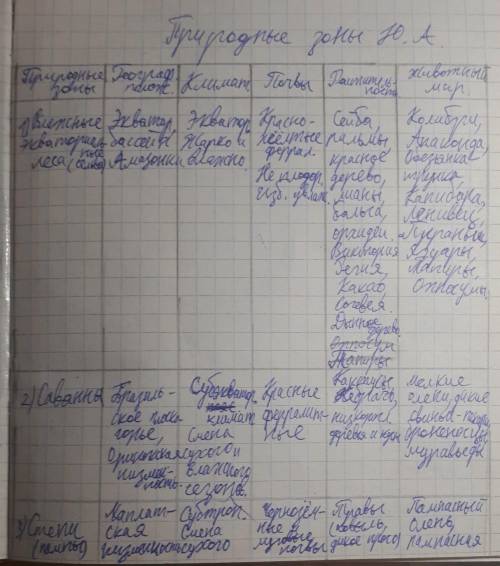 Природные зоны Ю.А.
Природные зоны
Географ. полож.
Климат
Почвы
Растительность
Животный мир.
1) Влажные
экваториальные
леса (сельва)
Экватор,
бассейн
Амазонки
Экватор.
Жарко и
влажно.
Красно-
жёлтые
феррал.
Не плодор.
изб. увлаж.
Сейба,
пальмы
красное
дерево,
лианы,
бальса,
орхидеи.
Виктория
Регия,
Какао
Гевея.
Дынное дерево
Опоссум
Тапиры
Колибри,
Анаконда,
Обезьянка
игрунка,
Капибара,
Ленивец,
Ягуары,
Тапиры,
Опоссумы.
2) Саванны
Бразиль-
ское плоско-
горье,
Оринокская
низмен-
ность
Субэкватор.
климат
Смена
сухого и
влажного
сезонов.
Красные
ферралит-
ные
Кактусы,
деревья и куст.
мелкие
олени, дикие
свиньи-пекари,
броненосцы,
муравьеды
3) Степи
(пампы)
Лаплат-
ская
низменность
Субтроп.
Смена
сухого
Чернозём-
ные и
почвы
Травы
(ковыль,
дикое просо)
Пампасный
олень,
пампасная